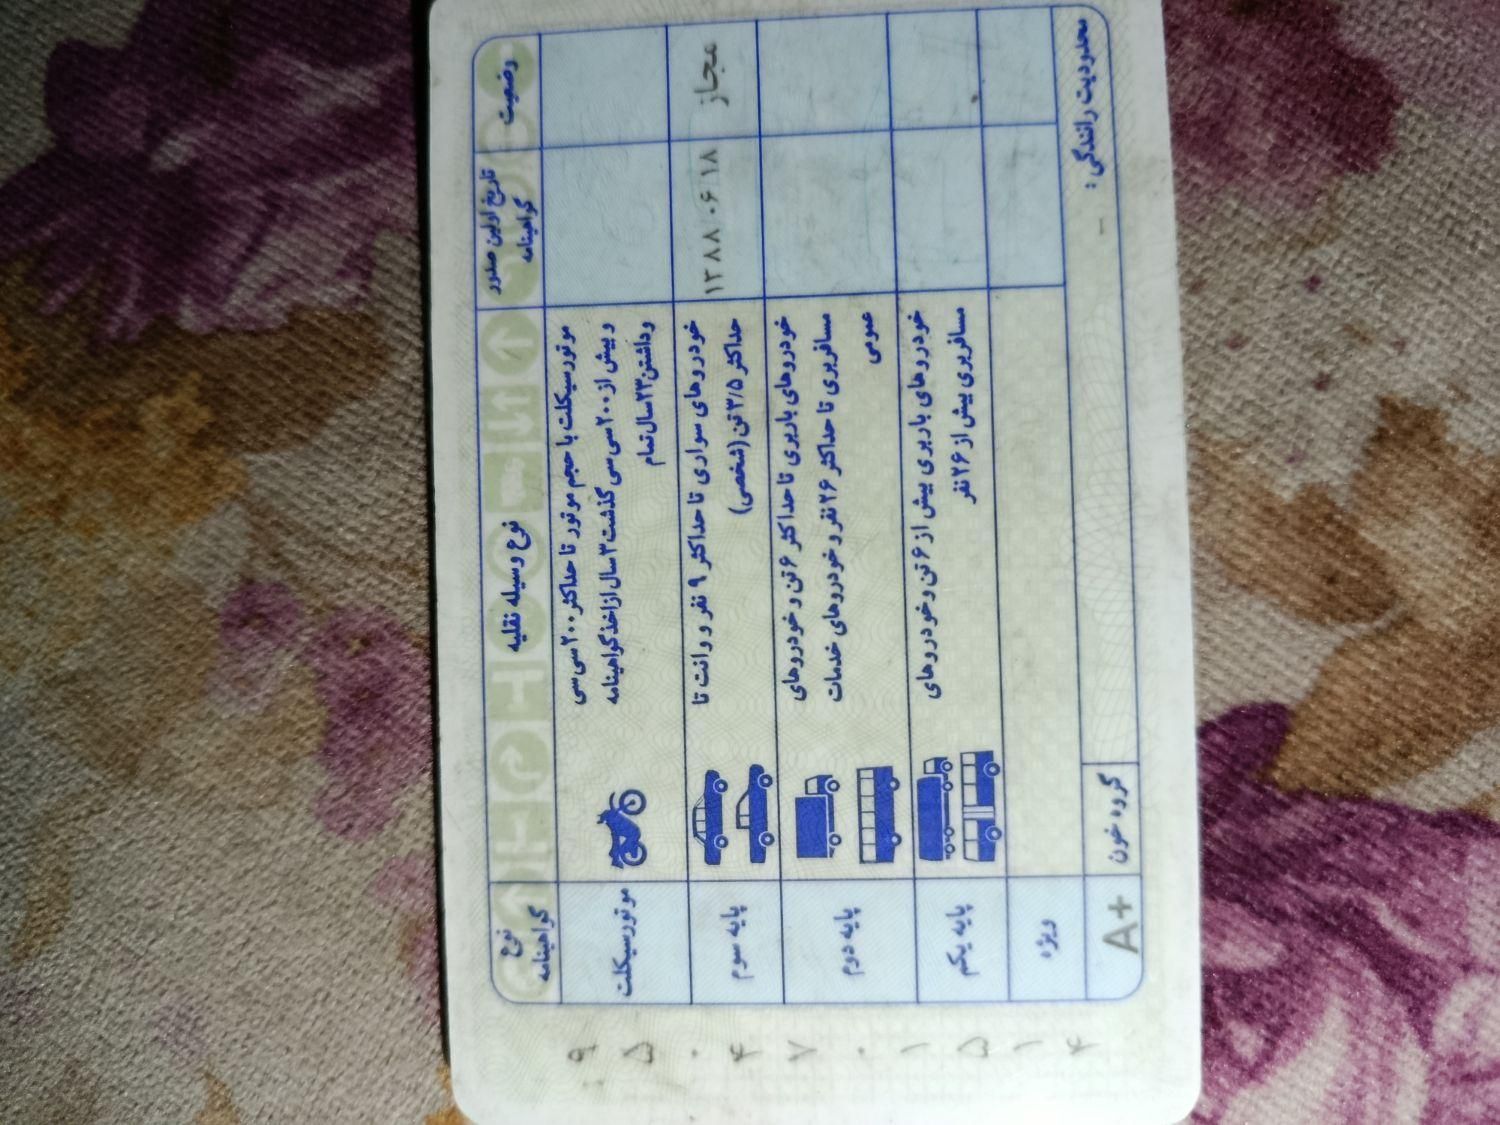 نوع گواهینامه
نوع وسیله نقلیه
تاریخ اولین صدور گواهینامه
وضعیت
موتورسیکلت
موتورسیکلت با حجم موتور تا حداکثر ۲۰۰ سی سی
و بیش از ۲۰۰ سی سی گذشت ۳ سال از اخذ گواهینامه
و داشتن ۲۳ سال تمام
پایه سوم
خودروهای سواری تا حداکثر ۹ نفر و وانت تا
حداکثر ۳/۵ تن (شخصی)
۱۳۸۸ ۰۶ ۱۸
مجاز
پایه دوم
خودروهای باربری تا حداکثر ۶ تن و خودروهای
مسافربری تا حداکثر ۲۶ نفر و خودروهای خدمات
عمومی
پایه یکم
خودروهای باربری بیش از ۶ تن و خودروهای
مسافربری بیش از ۲۶ نفر
ویژه
A+
گروه خون
محدودیت رانندگی :
-